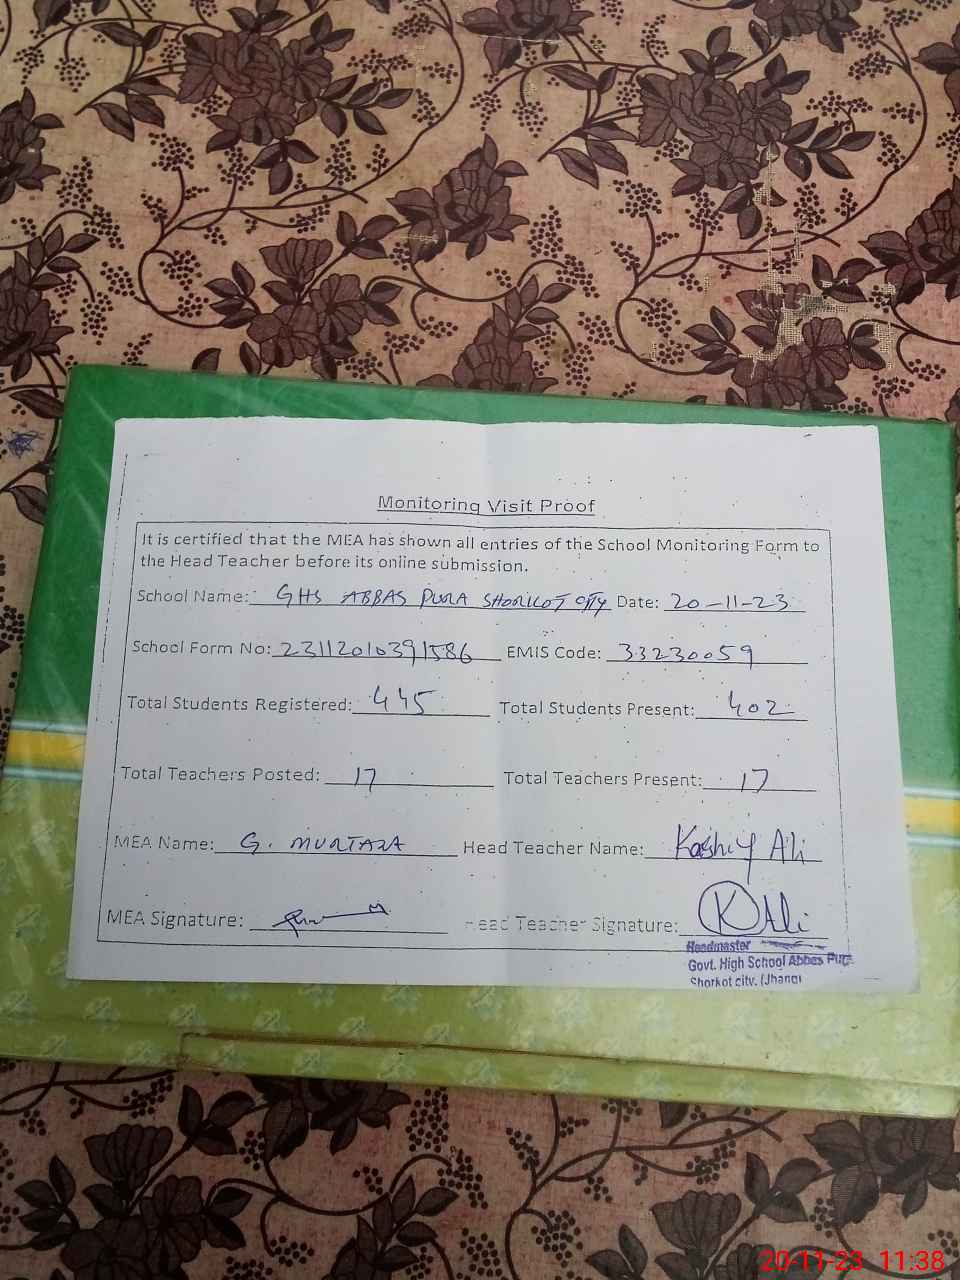 Monitoring Visit Proof
It is certified that the MEA has shown all entries of the School Monitoring Form to
the Head Teacher before its online submission.
School Name: GHS ABBAS PURA SHORKOT CITY Date: 20-11-23
School Form No: 23112010391586 EMIS Code: 33230059
Total Students Registered: 445 Total Students Present: 402
Total Teachers Posted: 17 Total Teachers Present: 17
MEA Name: G. MURTAZA Head Teacher Name: Kashif Ali
MEA Signature: Head Teacher Signature: K Ali
Headmaster
Govt. High School Abbas Pur
Shorkot city. (Jhang)
20-11-23 11:38